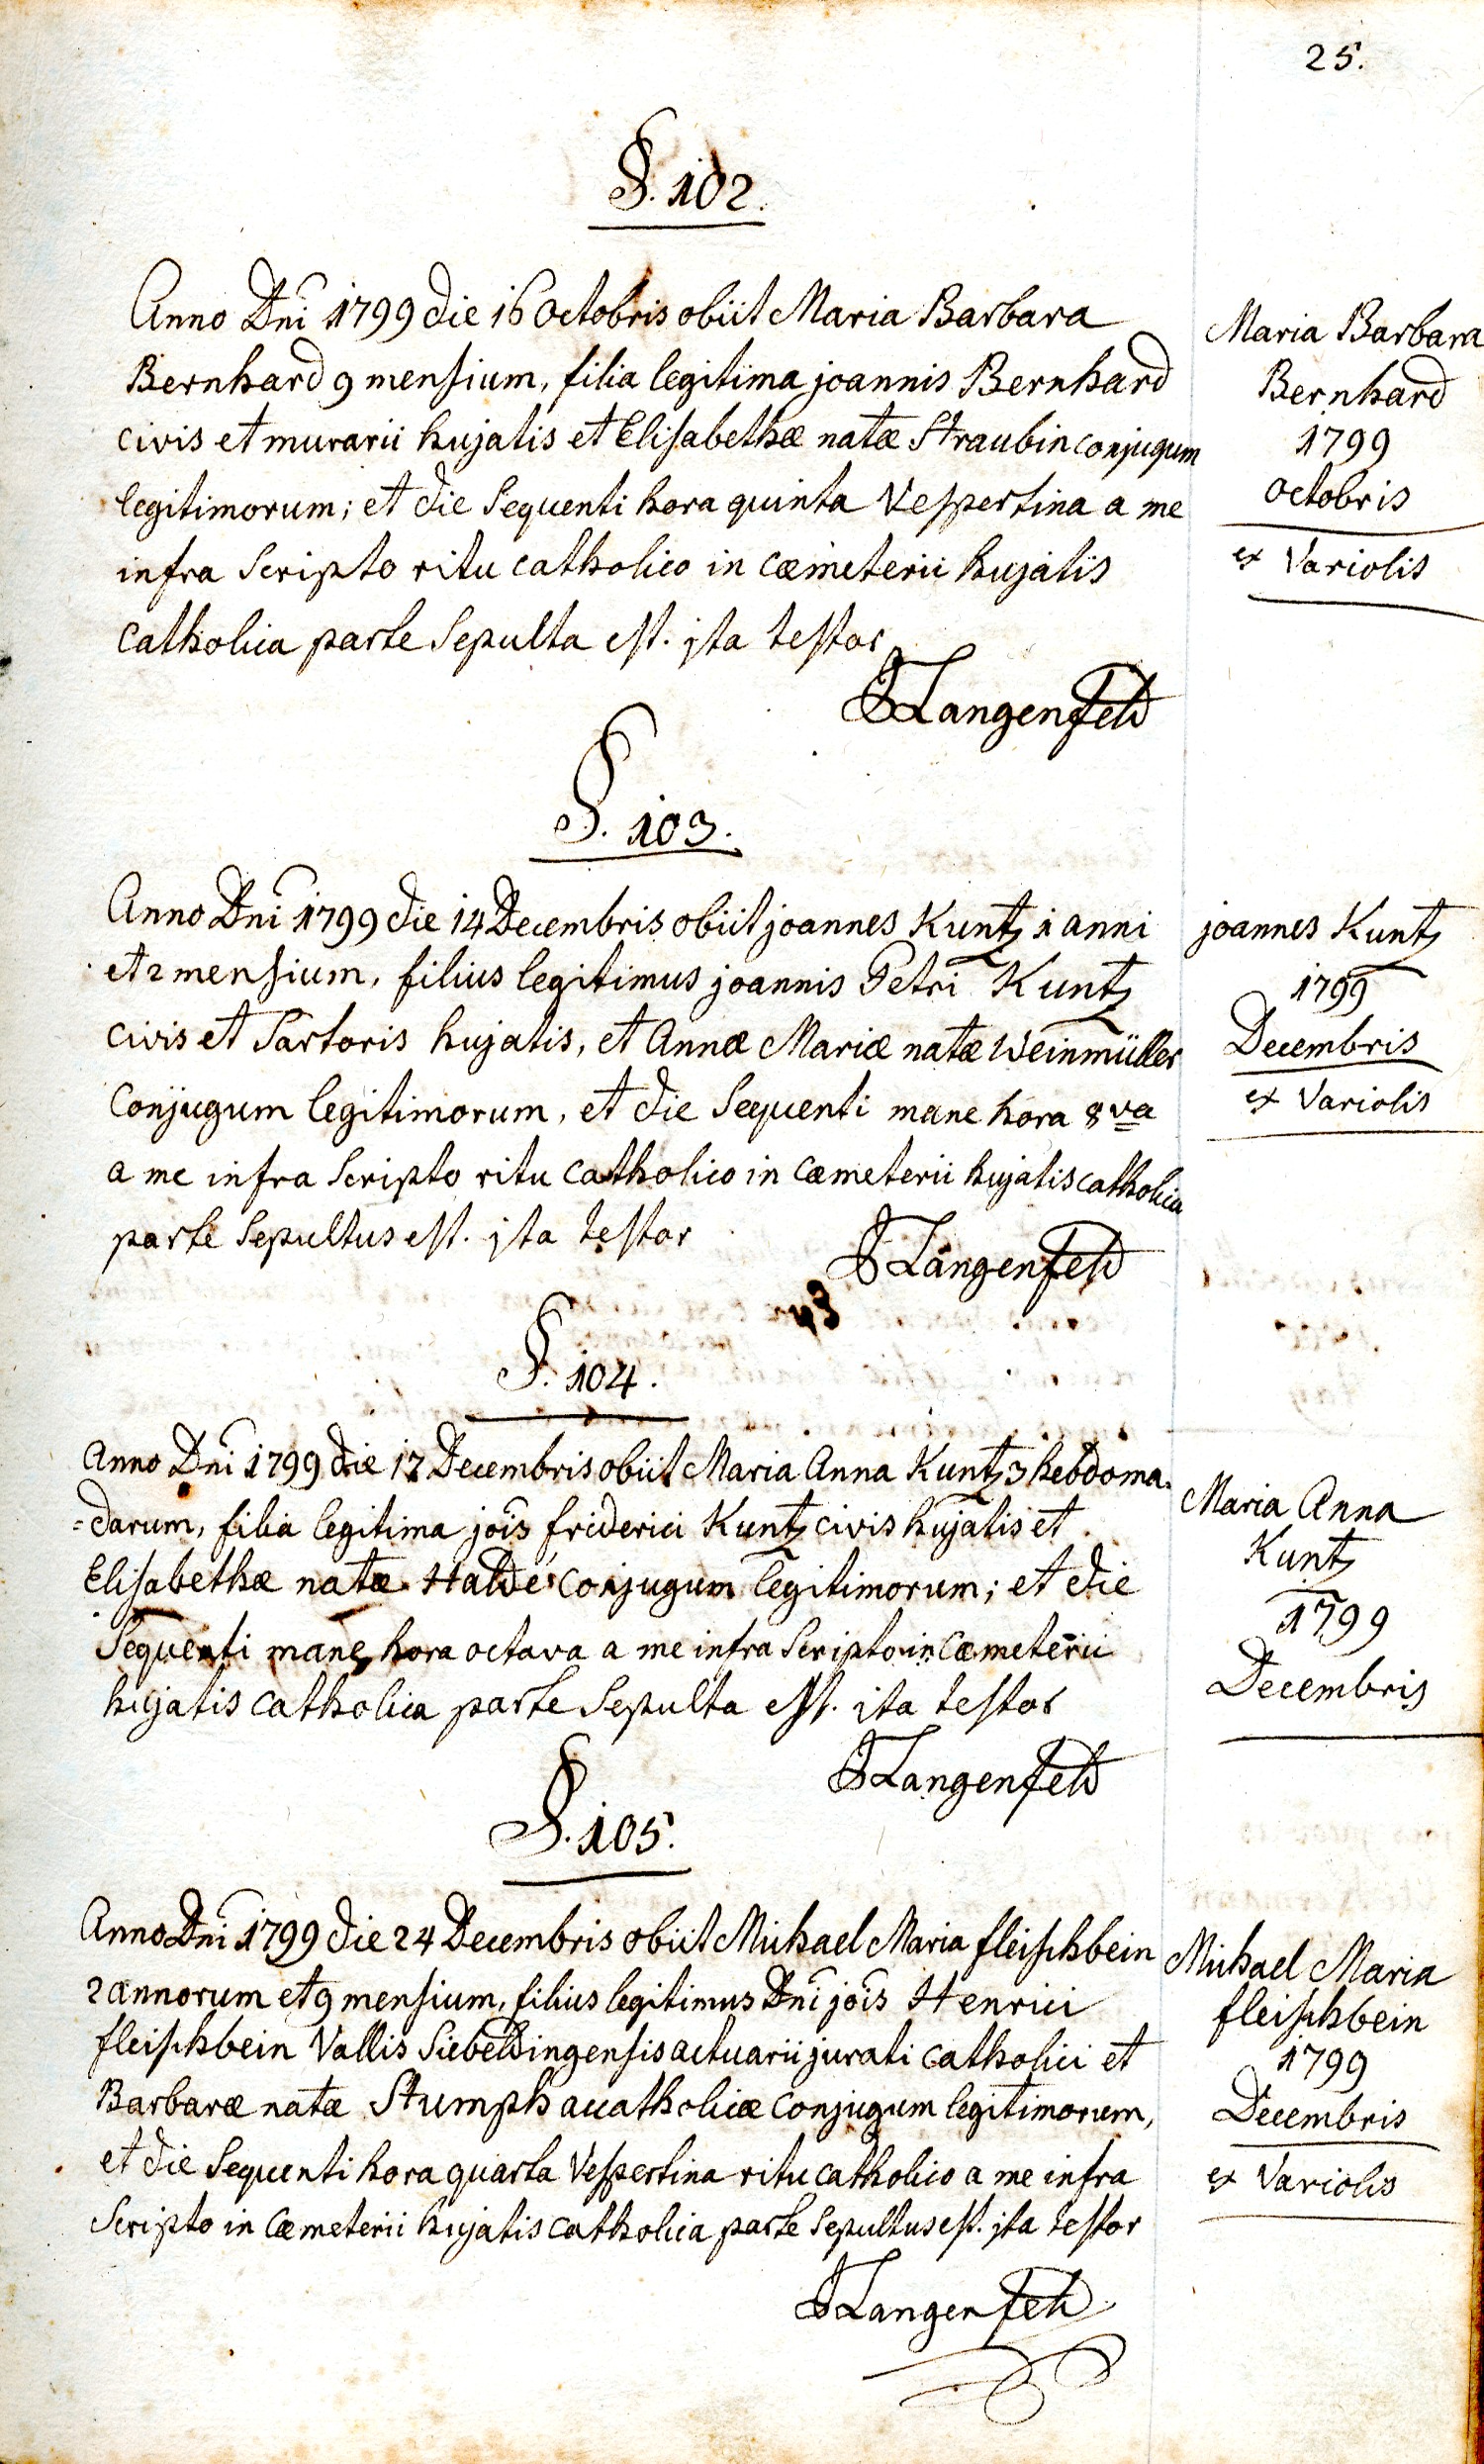 25.
§. 102.
Anno Dni 1799 die 16 Octobris obiit Maria Barbara
Bernhard 9 mensium, filia legitima joannis Bernhard
civis et murarii hujatis et Elisabethæ natæ Straubin conjugum
legitimorum; et die Sequenti hora quinta Vespertina a me
infra Scripto ritu catholico in cæmeterii hujatis
catholica parte Sepulta est. ita testor
Langenfeld
Maria Barbara
Bernhard
1799
Octobris
ex Variolis
§. 103.
Anno Dni 1799 die 14 Decembris obiit joannes Kuntz 1 anni
et 2 mensium, filius legitimus joannis Petri Kuntz
civis et Sartoris hujatis, et Annæ Mariæ natæ Weinmüller
Conjugum legitimorum, et die Sequenti mane hora 8va
a me infra Scripto ritu catholico in cæmeterii hujatis catholica
parte Sepultus est. ita testor
Langenfeld
joannes Kuntz
1799
Decembris
ex Variolis
§. 104.
Anno Dni 1799 die 17 Decembris obiit Maria Anna Kuntz 3 hebdoma-
=darum, filia legitima jois friderici Kuntz civis hujatis et
Elisabethæ natæ Haldé conjugum legitimorum; et die
Sequenti mane hora octava a me infra Scripto in cæmeterii
hujatis catholica parte Sepulta est. ita testor
Langenfeld
Maria Anna
Kuntz
1799
Decembris
§. 105.
Anno Dni 1799 die 24 Decembris obiit Michael Maria fleischbein
2 annorum et 9 mensium, filius legitimus Dni jois Henrici
fleischbein Vallis Siebeldingensis actuarii jurati catholici et
Barbaræ natæ Stumph acatholicæ conjugum legitimorum,
et die Sequenti hora quarta Vespertina ritu catholico a me infra
Scripto in Cæmeterii hujatis catholica parte Sepultus est. ita testor
Langenfeld
Michael Maria
fleischbein
1799
Decembris
ex Variolis